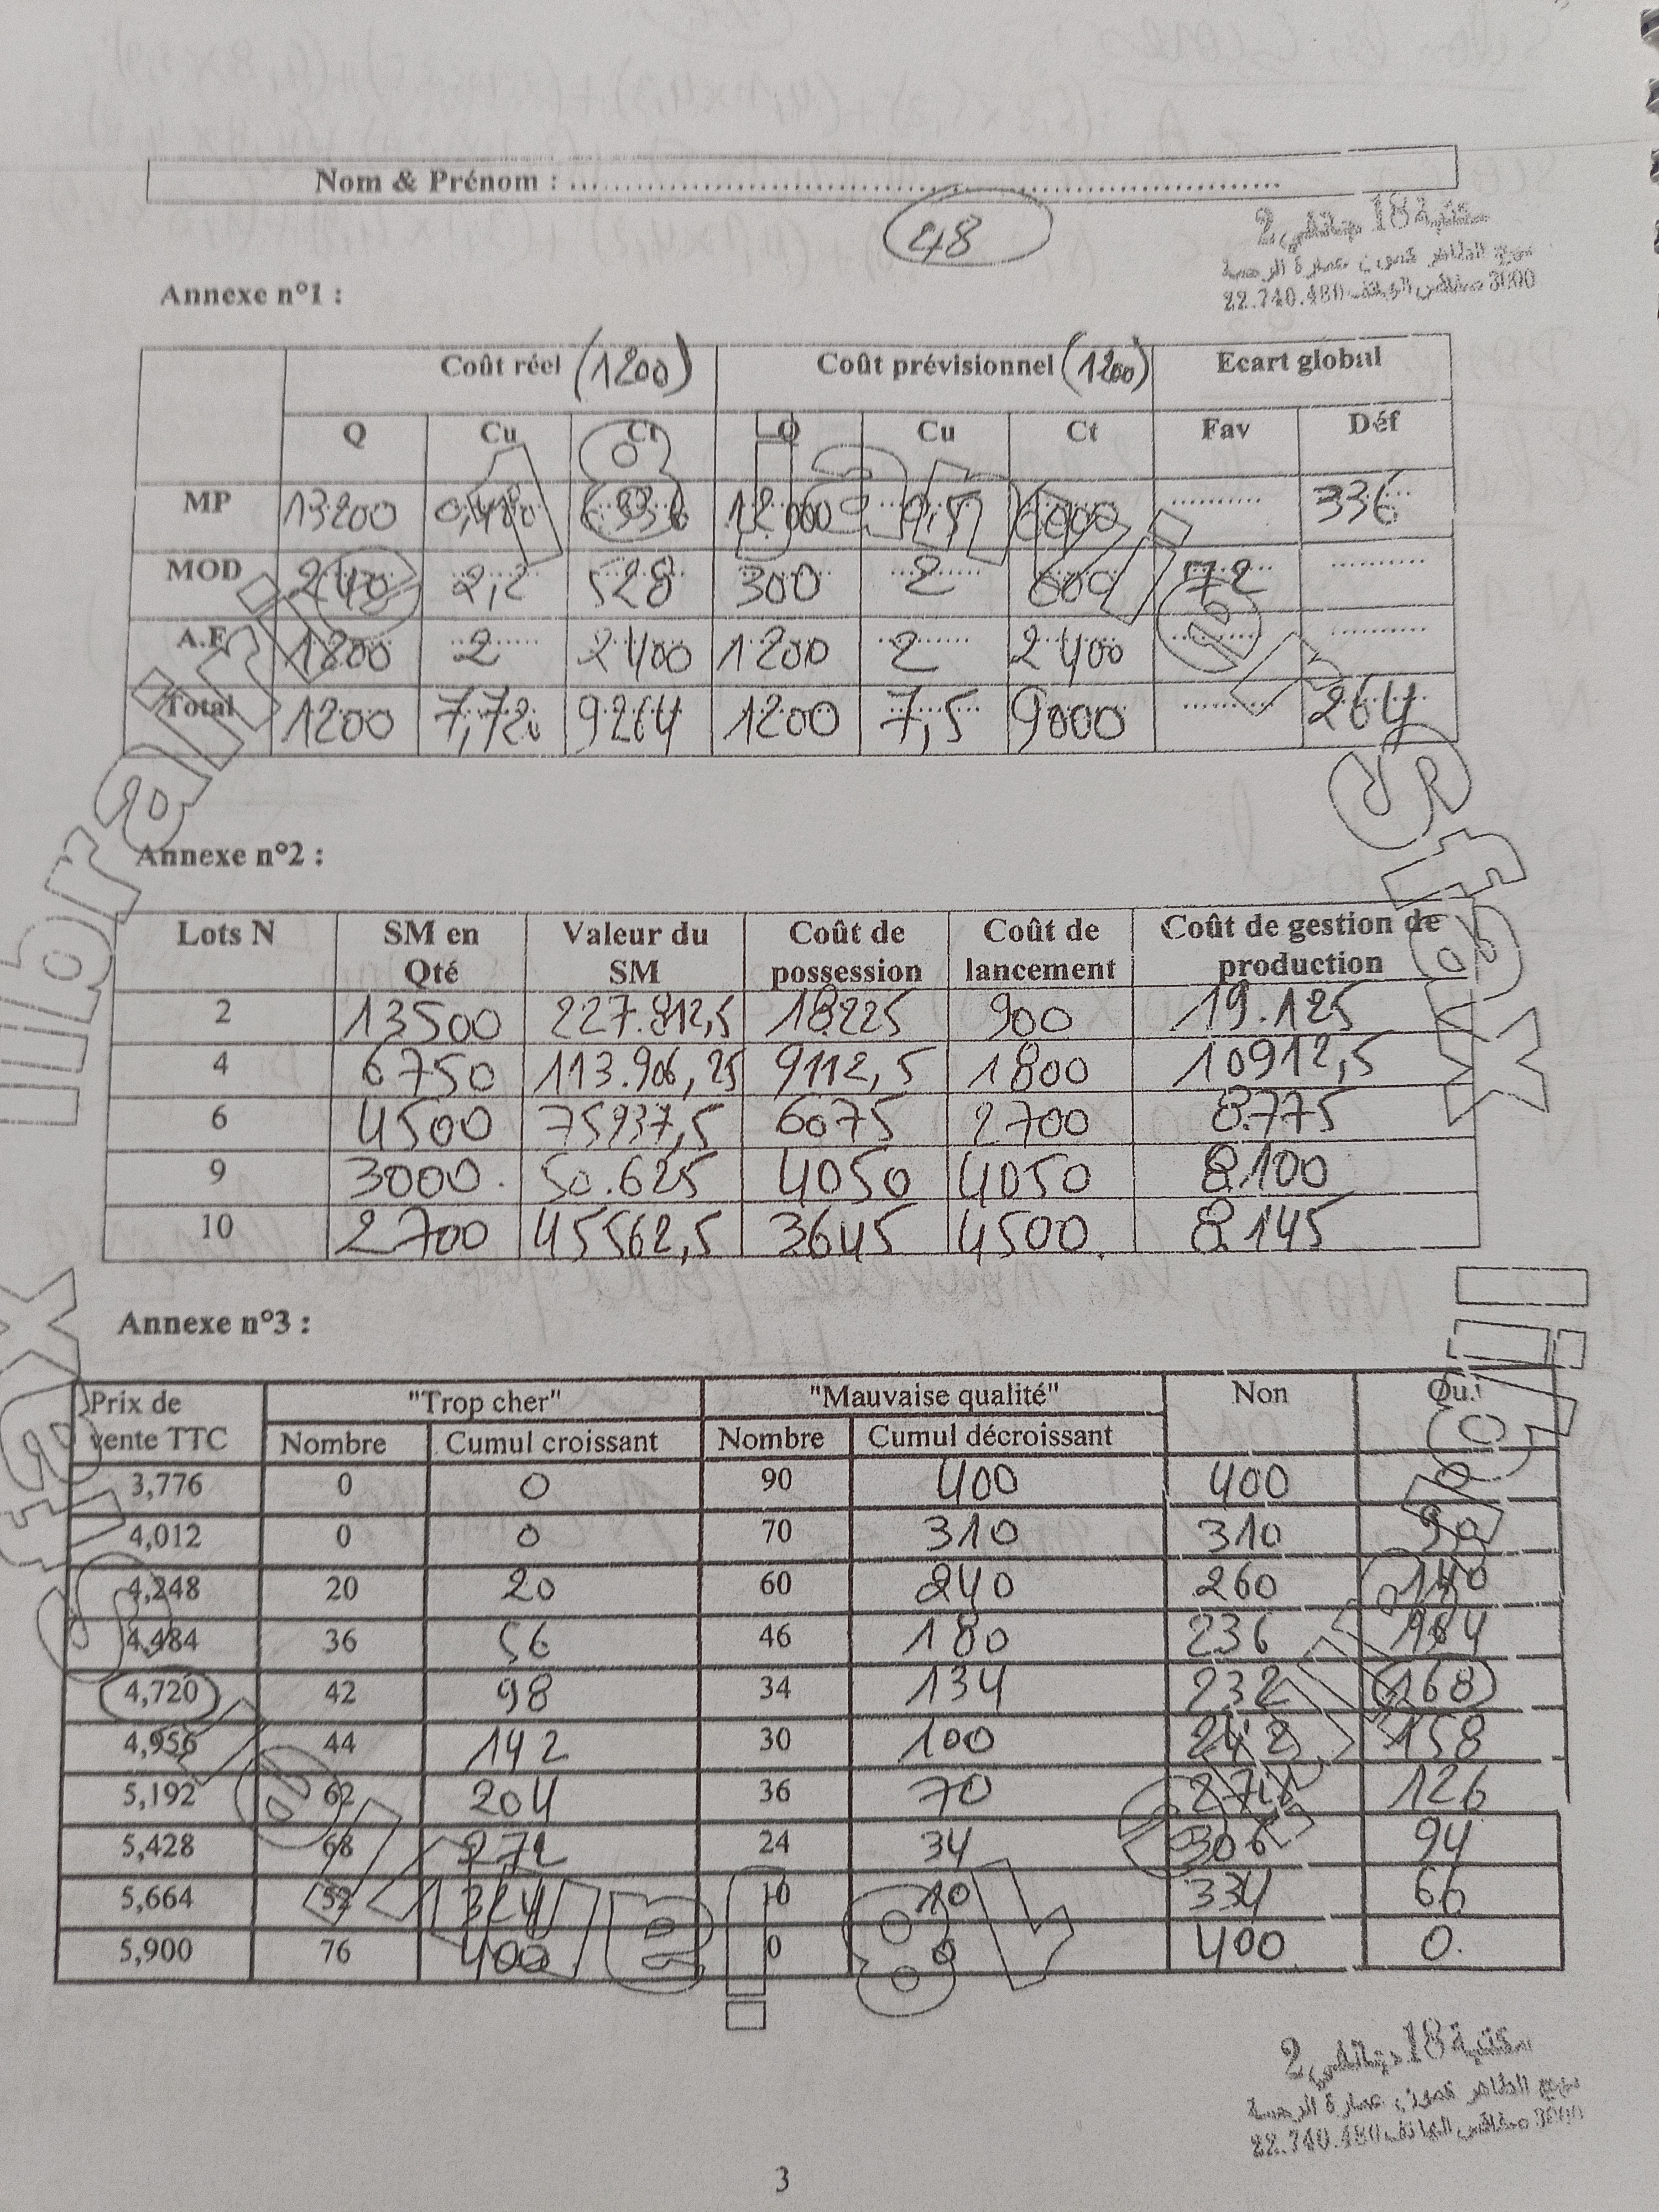 Nom & Prénom : ........................................................
48
مكتبة 18 جانفي 2
22.740.480 الهاتف صفاقس 3000
Annexe n°1 :
Coût réel (1200) Coût prévisionnel (1200) Ecart global
Q Cu Ct Q Cu Ct Fav Déf
MP 13200 0,480 6336 12000 0,5 6000 .......... 336
MOD 240 2,2 528 300 2 600 72 ..........
A.F 1200 2 2400 1200 2 2400 .......... ..........
Total 1200 7,72 9264 1200 7,5 9000 .......... 264
Annexe n°2 :
Lots N SM en Qté Valeur du SM Coût de possession Coût de lancement Coût de gestion de production
2 13500 227.812,5 18225 900 19.125
4 6750 113.906,25 9112,5 1800 10912,5
6 4500 75937,5 6075 2700 8.775
9 3000 50.625 4050 4050 8.100
10 2700 45562,5 3645 4500 8.145
Annexe n°3 :
Prix de vente TTC "Trop cher" "Mauvaise qualité" Non Oui
Nombre Cumul croissant Nombre Cumul décroissant
3,776 0 0 90 400 400 0
4,012 0 0 70 310 310 90
4,248 20 20 60 240 260 140
4,484 36 56 46 180 236 164
4,720 42 98 34 134 232 168
4,956 44 142 30 100 242 158
5,192 62 204 36 70 274 126
5,428 68 272 24 34 306 94
5,664 52 324 10 10 334 66
5,900 76 400 0 0 400 0
مكتبة 18 جانفي 2
22.740.480 الهاتف صفاقس 3000
3